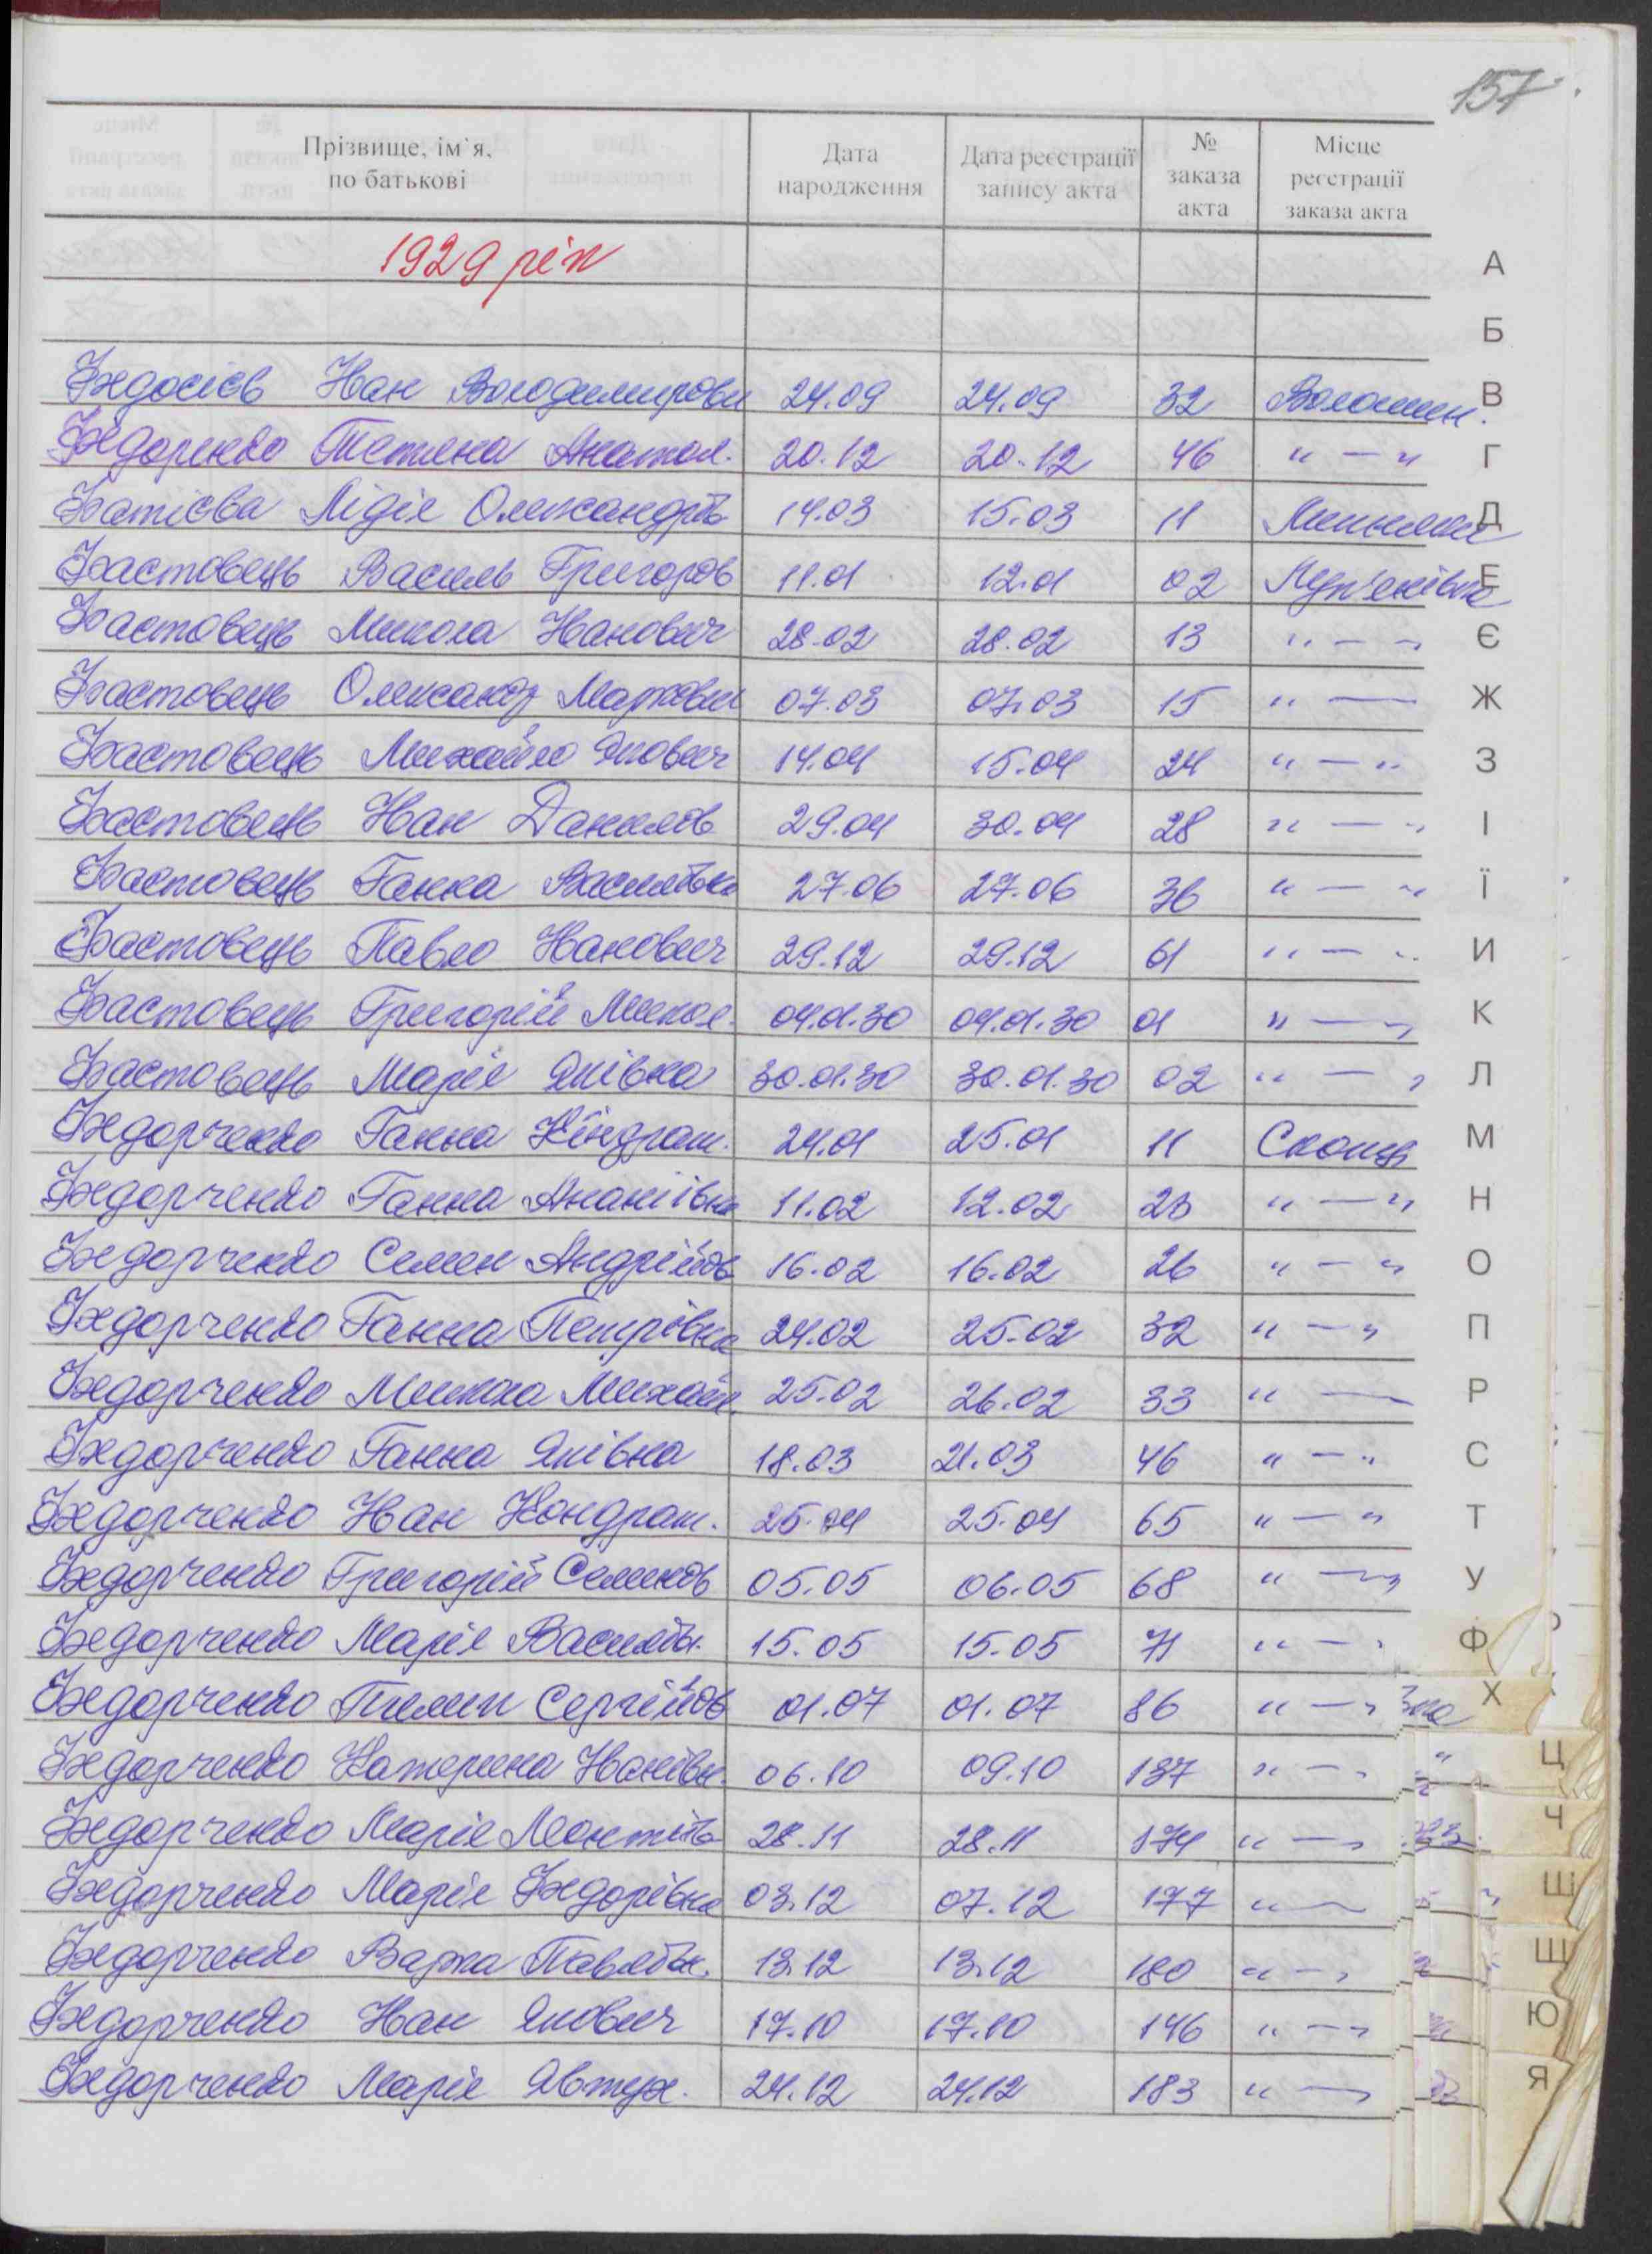 157
Прізвище, ім'я, по батькові Дата народження Дата реєстрації запису акта № заказа акта Місце реєстрації заказа акта
1929 рік
Федосієв Іван Володимирови 24.09 24.09 32
Федоренко Тетяна Анатол. 20.12 20.12 46 " — "
Фатієва Лідія Олександрів 14.03 15.03 11
Фастовець Василь Григоров 11.01 12.01 02
Фастовець Микола Іванович 28.02 28.02 13 " — "
Фастовець Олександр Маркович 07.03 07.03 15 " —
Фастовець Михайло Якович 14.04 15.04 24 " — "
Фастовець Іван Данилов 29.04 30.04 28 " — "
Фастовець Ганна Василівна 27.06 27.06 36 " — "
Фастовець Павло Іванович 29.12 29.12 61 " — "
Фастовець Григорій Микол. 04.01.30 04.01.30 01 " — "
Фастовець Марія Яківна 30.01.30 30.01.30 02 " — "
Федорченко Ганна Кіндрат. 24.01 25.01 11 Скопці
Федорченко Ганна Ананіївна 11.02 12.02 23 " — "
Федорченко Семен Андрійов 16.02 16.02 26 " — "
Федорченко Ганна Петрівна 24.02 25.02 32 " — "
Федорченко Микола Михайл. 25.02 26.02 33 " —
Федорченко Ганна Яківна 18.03 21.03 46 " — "
Федорченко Іван Кондрат. 25.04 25.04 65 " — "
Федорченко Григорій Семенов 05.05 06.05 68 " — "
Федорченко Марія Василів. 15.05 15.05 71 " — "
Федорченко Пилип Сергійов 01.07 01.07 86 " — "
Федорченко Катерина Іванівн. 06.10 09.10 137 " — "
Федорченко Марія 28.11 28.11 174 " — "
Федорченко Марія Федорівна 03.12 07.12 177 " —
Федорченко Варка Павлівн. 13.12 13.12 180 " — "
Федорченко Іван Якович 17.10 17.10 146 " — "
Федорченко Марія Явтух. 24.12 24.12 183 " — "
А
Б
В
Г
Д
Е
Є
Ж
З
І
Ї
И
К
Л
М
Н
О
П
Р
С
Т
У
Ф
Х
Ц
Ч
Ш
Щ
Ю
Я